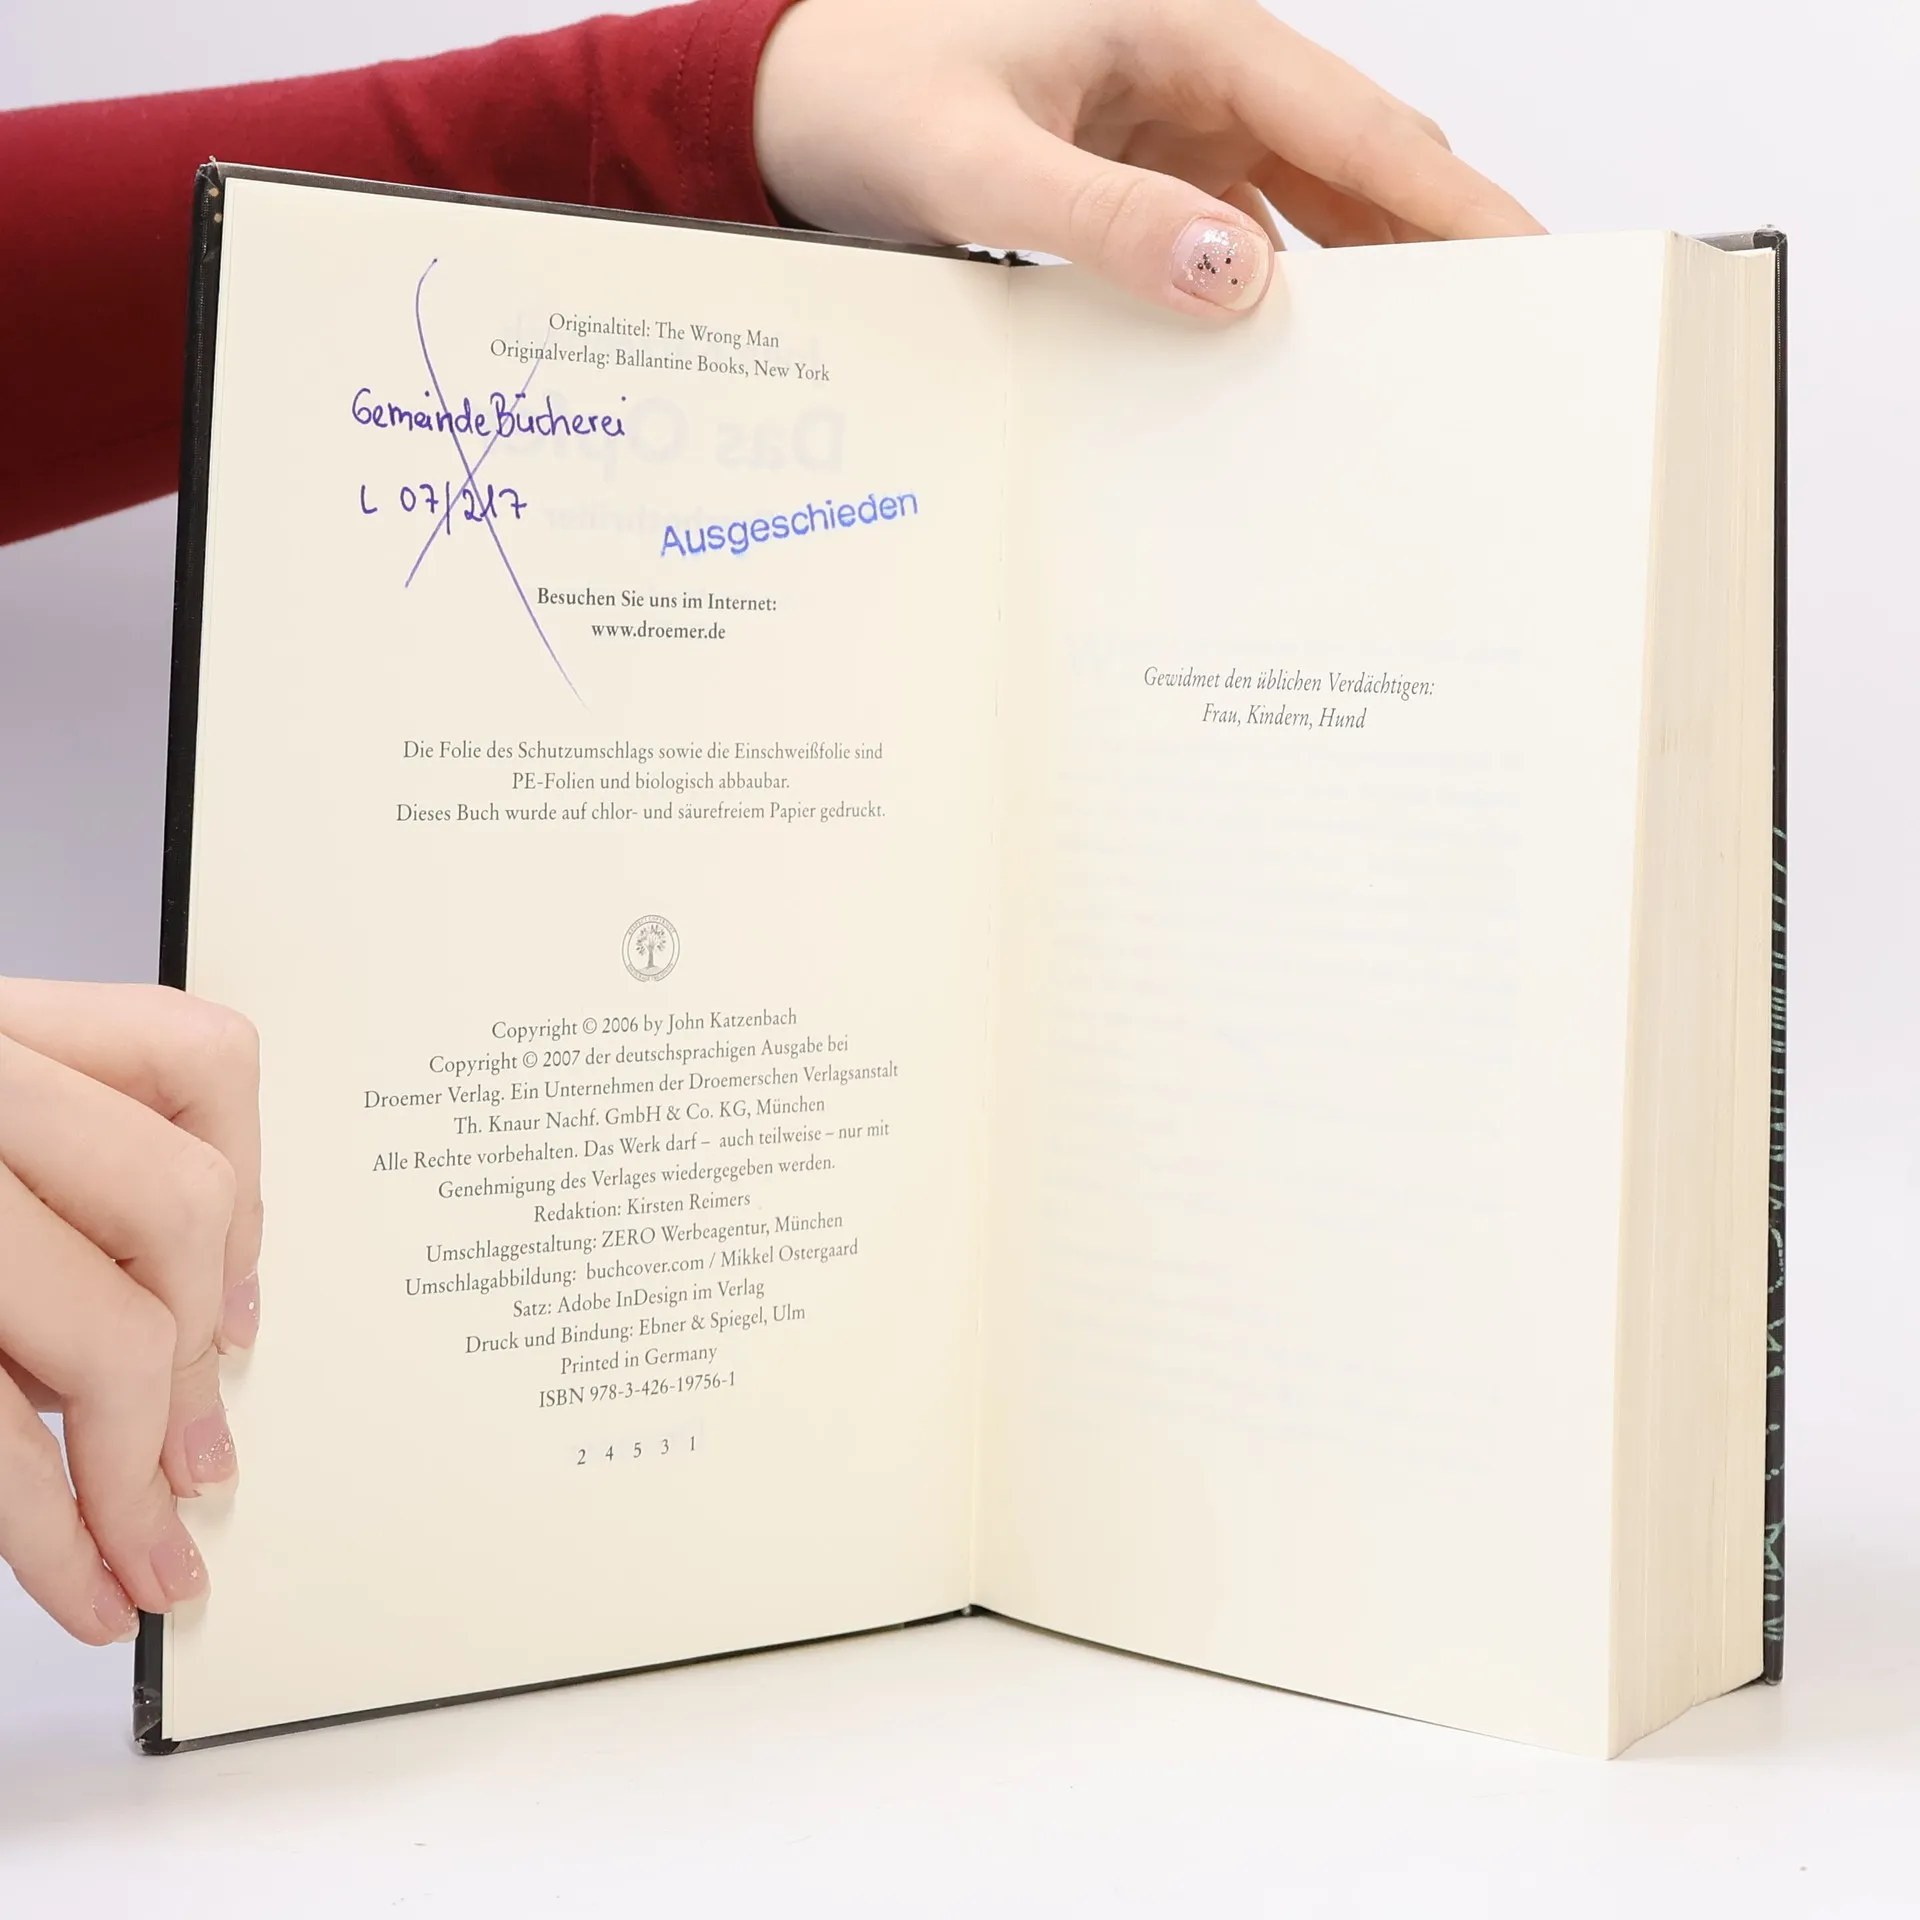 Originaltitel: The Wrong Man
Originalverlag: Ballantine Books, New York
GemeindeBücherei
L 07/217
Ausgeschieden
Besuchen Sie uns im Internet:
www.droemer.de
Die Folie des Schutzumschlags sowie die Einschweißfolie sind
PE-Folien und biologisch abbaubar.
Dieses Buch wurde auf chlor- und säurefreiem Papier gedruckt.
Copyright © 2006 by John Katzenbach
Copyright © 2007 der deutschsprachigen Ausgabe bei
Droemer Verlag. Ein Unternehmen der Droemerschen Verlagsanstalt
Th. Knaur Nachf. GmbH & Co. KG, München
Alle Rechte vorbehalten. Das Werk darf – auch teilweise – nur mit
Genehmigung des Verlages wiedergegeben werden.
Redaktion: Kirsten Reimers
Umschlaggestaltung: ZERO Werbeagentur, München
Umschlagabbildung: buchcover.com / Mikkel Ostergaard
Satz: Adobe InDesign im Verlag
Druck und Bindung: Ebner & Spiegel, Ulm
Printed in Germany
ISBN 978-3-426-19756-1
2 4 5 3 1
Gewidmet den üblichen Verdächtigen:
Frau, Kindern, Hund